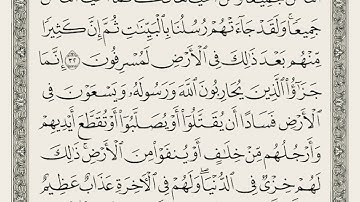 جَمِيعًا ۚ وَلَقَدْ جَآءَتْهُمْ رُسُلُنَا بِٱلْبَيِّنَٰتِ ثُمَّ إِنَّ كَثِيرًا
مِّنْهُم بَعْدَ ذَٰلِكَ فِى ٱلْأَرْضِ لَمُسْرِفُونَ ٣٢ إِنَّمَا
جَزَٰٓؤُا۟ ٱلَّذِينَ يُحَارِبُونَ ٱللَّهَ وَرَسُولَهُۥ وَيَسْعَوْنَ فِى
ٱلْأَرْضِ فَسَادًا أَن يُقَتَّلُوٓا۟ أَوْ يُصَلَّبُوٓا۟ أَوْ تُقَطَّعَ أَيْدِيهِمْ
وَأَرْجُلُهُم مِّنْ خِلَٰفٍ أَوْ يُنفَوْا۟ مِنَ ٱلْأَرْضِ ۚ ذَٰلِكَ
لَهُمْ خِزْىٌ فِى ٱلدُّنْيَا ۖ وَلَهُمْ فِى ٱلْـَٔاخِرَةِ عَذَابٌ عَظِيمٌ